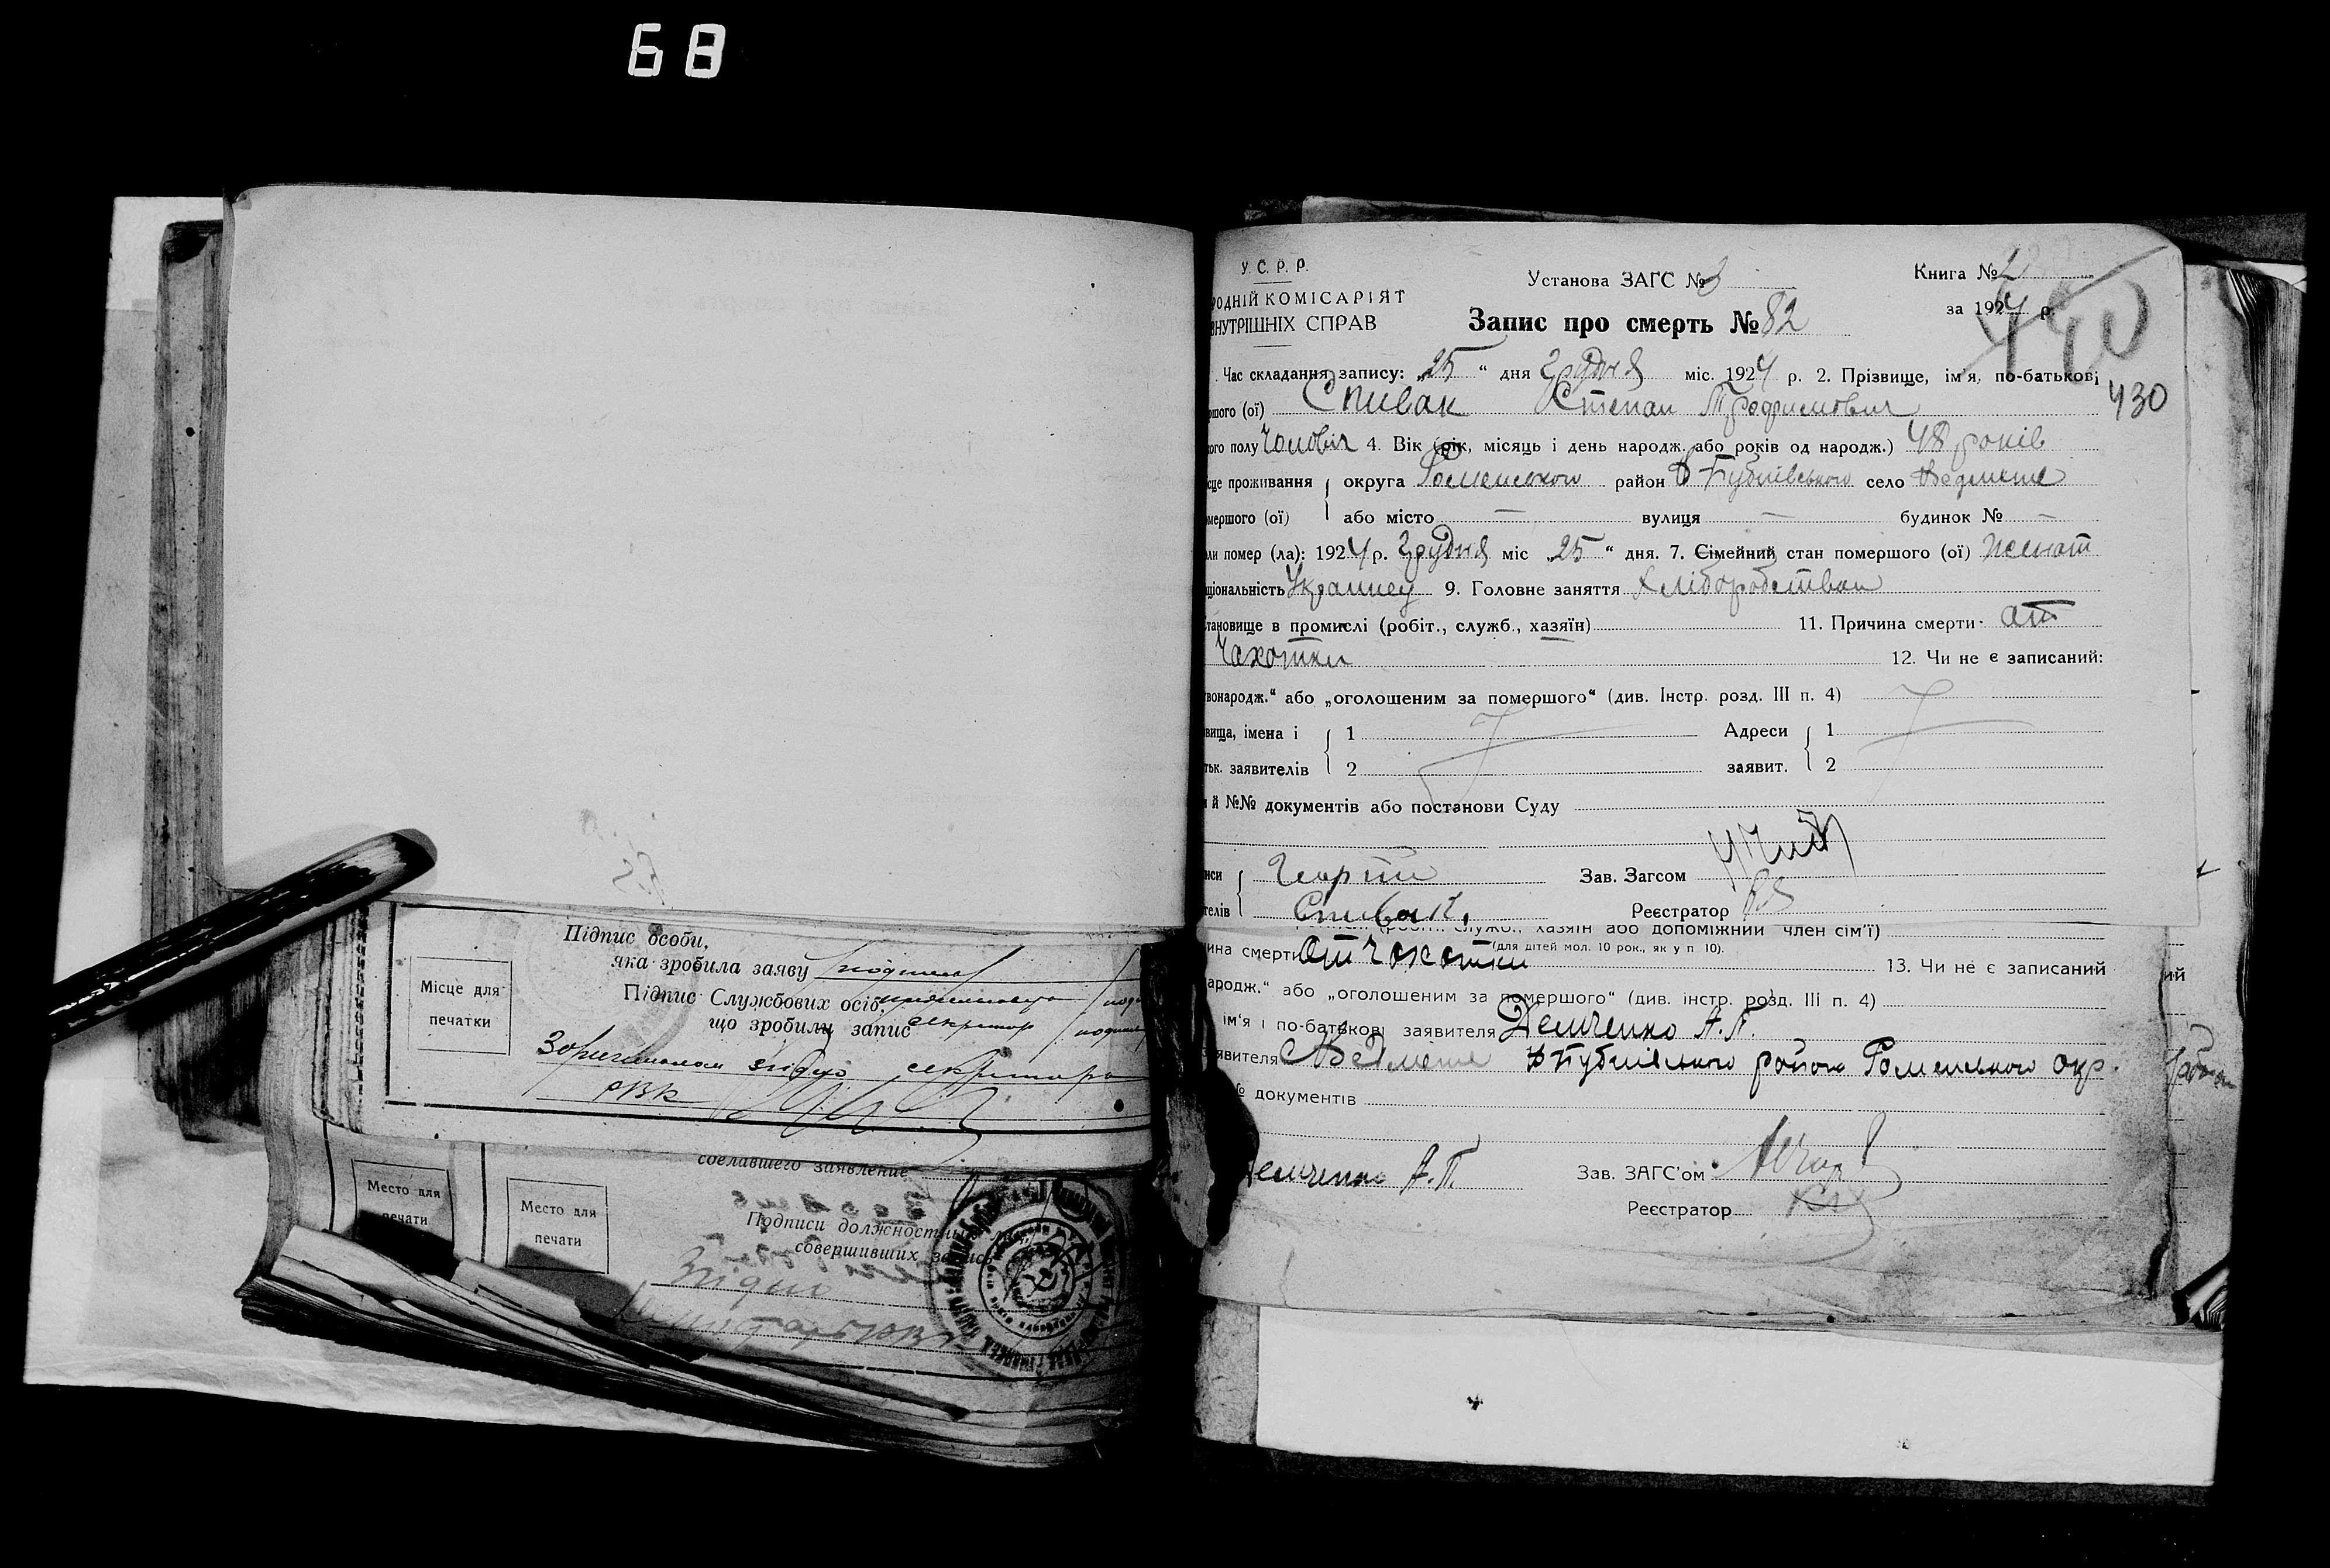 68
У. С. Р. Р.
РОДНІЙ КОМІСАРІЯТ
ВНУТРІШНІХ СПРАВ
Установа ЗАГС № 3
Книга № 2
за 1924 р.
Запис про смерть № 82
430
Час складання запису: „25“ дня Грудня міс. 1924 р. 2. Прізвище, ім'я, по-батькові
ршого (ої) Спивак Степан Трофимович
ого полу Чоловіч 4. Вік (рік, місяць і день народж. або років од народж.) 48 років
сце проживання округа Роменського район село Ведмеже
мершого (ої) або місто — вулиця — будинок № —
ли помер (ла): 1924 р. Грудня міс „25“ дня. 7. Сімейний стан помершого (ої) женат
ціональність Украинец 9. Головне заняття Хліборобством
тановище в промислі (робіт., служб., хазяїн) 11. Причина смерти от
Чахотки 12. Чи не є записаний:
вонародж.“ або „оголошеним за помершого“ (див. Інстр. розд. III п. 4)
вища, імена і 1 Адреси 1
тьк. заявителів 2 заявит. 2
й №№ документів або постанови Суду
иси Георгий Зав. Загсом
телів Спивак. Реєстратор
служб., хазяїн або допоміжний член сім'ї)
ина смерти от Чохотки (для дітей мол. 10 рок., як у п 10). 13. Чи не є записаний
ародж.“ або „оголошеним за помершого“ (див. інстр. розд. III п. 4)
ім'я і по-батькові заявителя Демченко А. П.
явителя с Ведмеже району Роменського окр.
№ документів
емченко А. П. Зав. ЗАГС'ом
Реєстратор
Підпис особи,
яка зробила заяву подпись
Місце для
печатки
Підпис Службових осіб,
що зробили запис секретар
З оригиналом згідно секретарь
РВК
сделавшего заявление
Место для
печати
Место для
печати
Подписи должностных лиц,
совершивших запись
Згідно